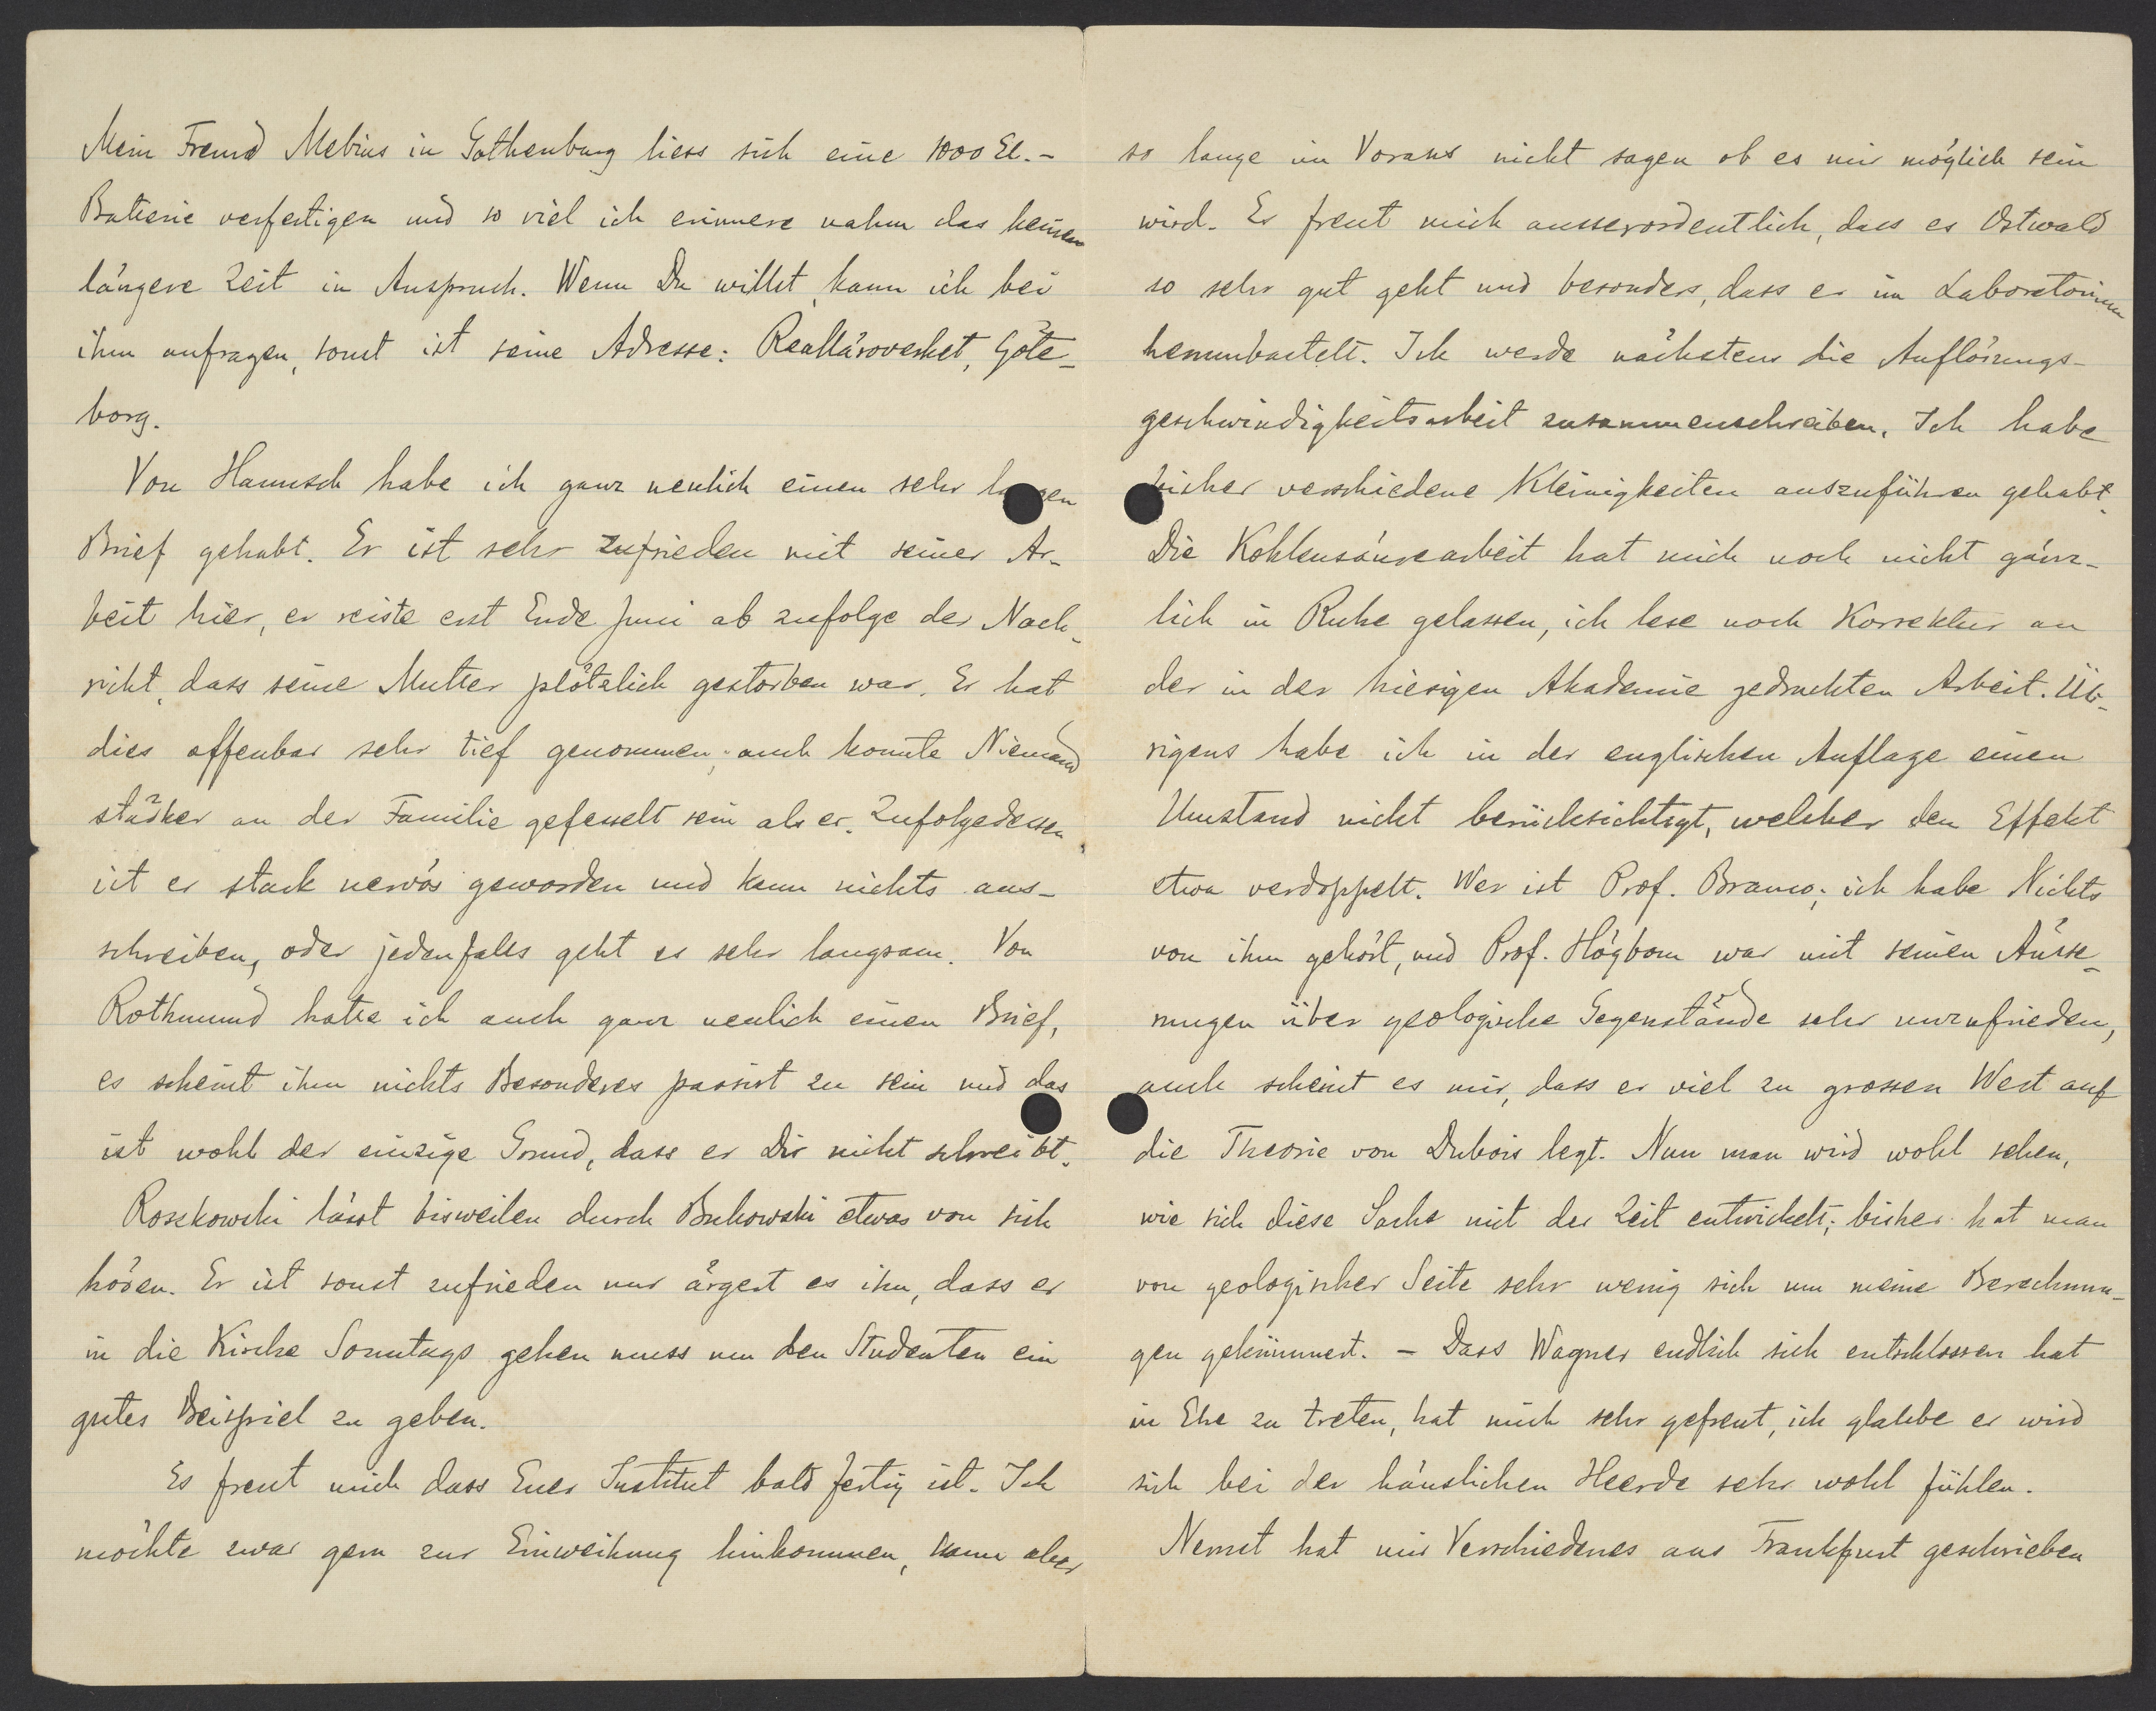 Mein Freund Mebius in Gothenburg liess sich eine 1000 El.-
Batterie verfertigen und so viel ich erinnere nahm das keinen
längere Zeit in Anspruch. Wenn Du willst, kann ich bei
ihm anfragen, sonst ist seine Adresse: Realläroverket, Göte-
borg.
Von Hannsch habe ich ganz neulich einen sehr langen
Brief gehabt. Er ist sehr zufrieden mit seiner Ar-
beit hier, er reiste erst Ende Juni ab zufolge der Nach-
richt, dass seine Mutter plötzlich gestorben war. Er hat
dies offenbar sehr tief genommen; auch konnte Niemand
stärker an der Familie gefesselt sein als er. Zufolgedessen
ist er stark nervös geworden und kann nichts aus-
schreiben, oder jedenfalls geht es sehr langsam. Von
Rothmund hatte ich auch ganz neulich einen Brief,
es scheint ihm nichts Besonderes passirt zu sein und das
ist wohl der einzige Grund, dass er Dir nicht schreibt.
Roszkowski lässt bisweilen durch Bukowski etwas von sich
hören. Er ist sonst zufrieden nur ärgert es ihn, dass er
in die Kirche Sonntags gehen muss um den Studenten ein
gutes Beispiel zu geben.
Es freut mich dass Euer Institut bald fertig ist. Ich
möchte zwar gern zur Einweihung hinkommen, kann aber
so lange im Voraus nicht sagen ob es mir möglich sein
wird. Es freut mich ausserordentlich, dass es Ostwald
so sehr gut geht und besonders, dass er im Laboratorium
herumbastelt. Ich werde nächstens die Auflösungs-
geschwindigkeitsarbeit zusammenschreiben. Ich habe
bisher verschiedene Kleinigkeiten auszuführen gehabt.
Die Kohlensäurearbeit hat mich noch nicht gänz-
lich in Ruhe gelassen, ich lese noch Korrektur an
der in der hiesigen Akademie gedruckten Arbeit. Üb-
rigens habe ich in der englischen Auflage einen
Umstand nicht berücksichtigt, welcher den Effekt
etwa verdoppelt. Wer ist Prof. Branco; ich habe Nichts
von ihm gehört, und Prof. Högbom war mit seinen Äusse-
rungen über geologische Gegenstände sehr unzufrieden,
auch scheint es mir, dass er viel zu grossen Wert auf
die Theorie von Dubois legt. Nun man wird wohl sehen,
wie sich diese Sache mit der Zeit entwickelt; bisher hat man
von geologischer Seite sehr wenig sich um meine Berechnun-
gen gekümmert. - Dass Wagner endlich sich entschlossen hat
in Ehe zu treten, hat mich sehr gefreut, ich glaube er wird
sich bei der häuslichen Heerde sehr wohl fühlen.
Nernst hat mir Verschiedenes aus Frankfurt geschrieben